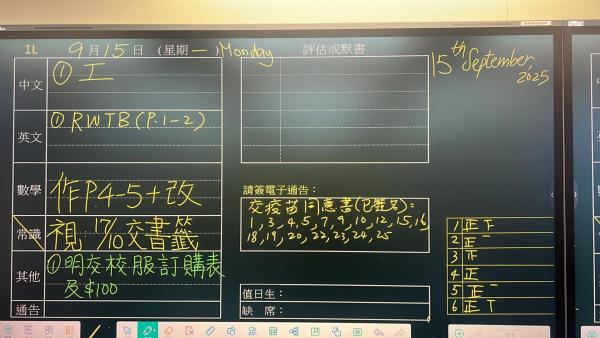 1L 9月15日 (星期一) Monday
中文 ①工
英文 ①RWTB(P.1-2)
數學 作P4-5+改
常識 視 17/10交書籤
其他 ①明交校服訂購表
及$100
通告
評估或默書
15th September,
2025
請簽電子通告:
交疫苗同意書(已簽名):
1,3,4,5,7,9,10,12,15,16
18,19,20,22,23,24,25
值日生:
缺 席:
1 正下
2 正一
3
4 正
5 正一
6 正丅
1/1